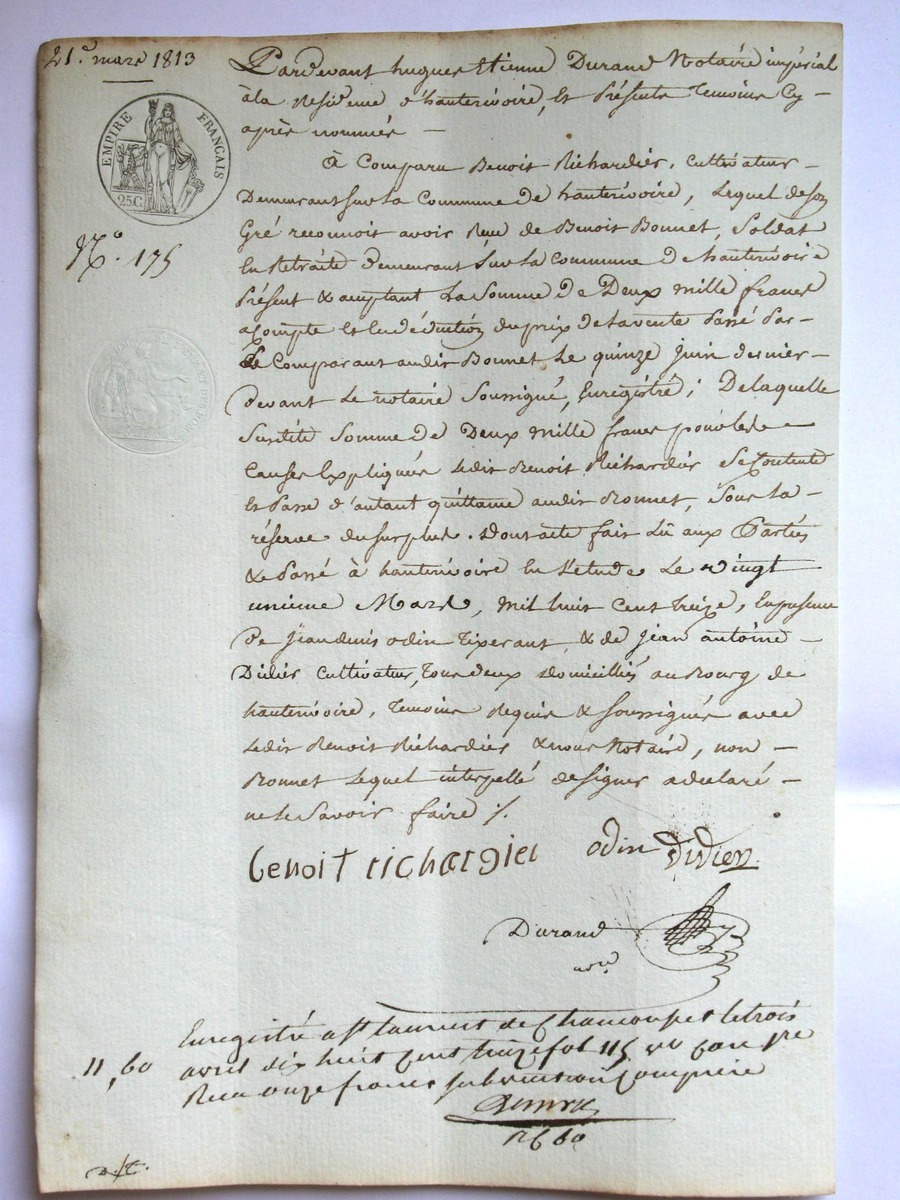 21.e mars 1813
EMPIRE FRANÇAIS
25C
N.o 175
Pardevant hugues Etienne Durand Notaire impérial
à la Residence d'hauterivoire, Et Présents Temoins Cy-
après nommés —
À Comparu Benoit Richardier, cultivateur –
Demeurant sur la Commune de hauterivoire, Lequel de son
Gré reconnoit avoir Reçu de Benoit Bonnet, Soldat
En Retraite demeurant sur la Commune de hauterivoire
Présent & acceptant La Somme de Deux mille francs
acompte et en déduction du prix de la vente Passé Par –
Le Comparant audit Bonnet Le quinze juin dernier –
devant Le notaire Soussigné, Enregistré ; De laquelle
Susdite Somme de Deux mille francs pour les –
Causes Expliquées Ledit Benoit Richardier Se Contente
Et Passe d'autant quittance audit Bonnet, Sous La –
réserve du surplus. Dont acte fait Lû aux Parties
& Passé à hauterivoire En L'etude Le vingt
unieme Mars, mil huit Cent treize, En presence
de Jean denis odin Tixerant, & de jean antoine –
Didier cultivateur, Tous deux domiciliés au Bourg de
hauterivoire, Temoins Requis & Soussignés avec
Ledit Benoit Richardier & nous Notaire, non –
Bonnet Lequel interpellé de signer a declaré –
ne le Savoir faire ./.
benoit richardier odin didier
Durand
nore
Enregistré a St laurent de Chamousset le trois
11,60 avril dix huit cent treize fol 115 vo
Reçu onze francs subvention comprise